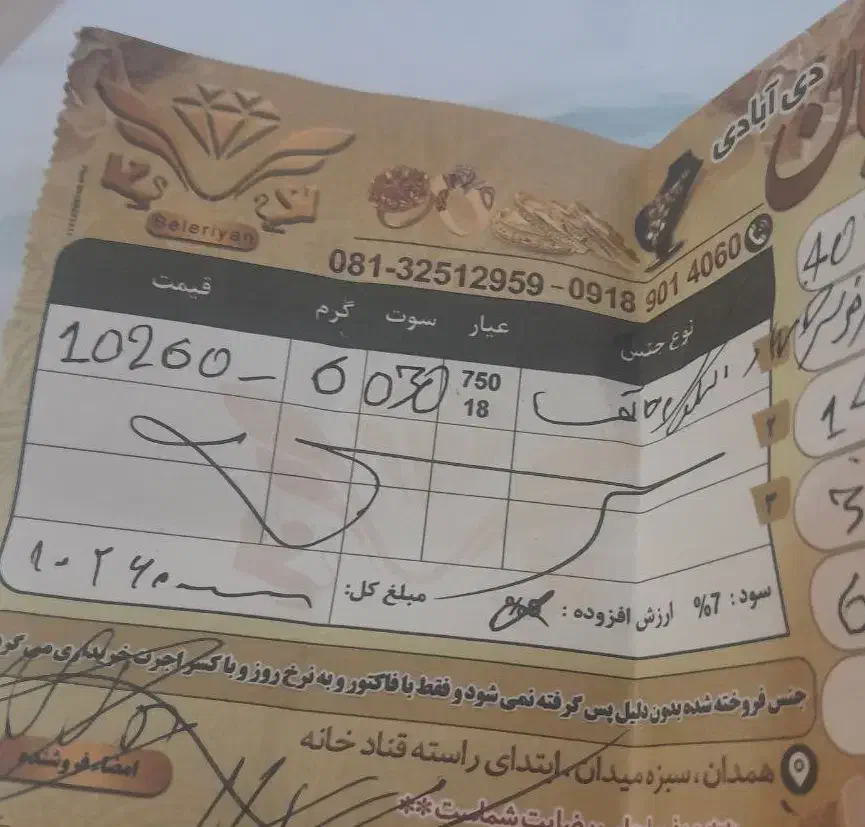 دی آبادی
Beleriyan
081-32512959 - 0918 901 4060
نوع جنس عیار سوت گرم قیمت
750
18
030
6
10260
40
۲
۳
3
سود: 7% ارزش افزوده:
مبلغ کل: ۱۰۲۶۰
جنس فروخته شده بدون دلیل پس گرفته نمی شود و فقط با فاکتور و به نرخ روز و با کسر اجرت خریداری می گرد
همدان، سبزه میدان، ابتدای راسته قناد خانه
امضاء فروشنده
رضایت شماست**